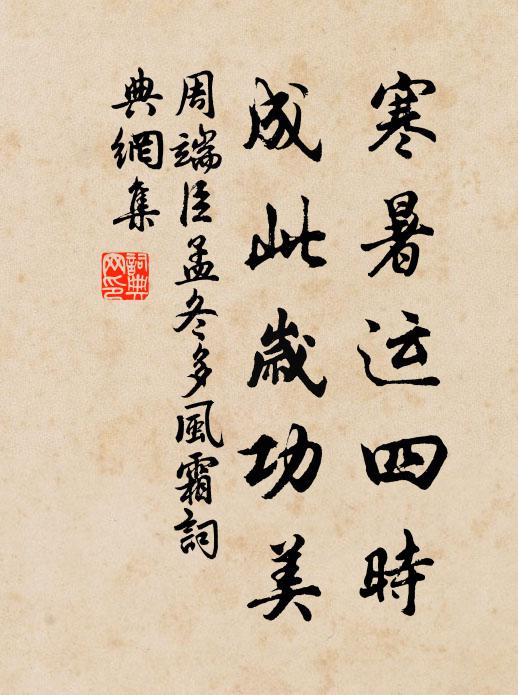 寒暑运四時
成此歲功美
周端臣孟冬多風霜詞
典網集
詞典
网印